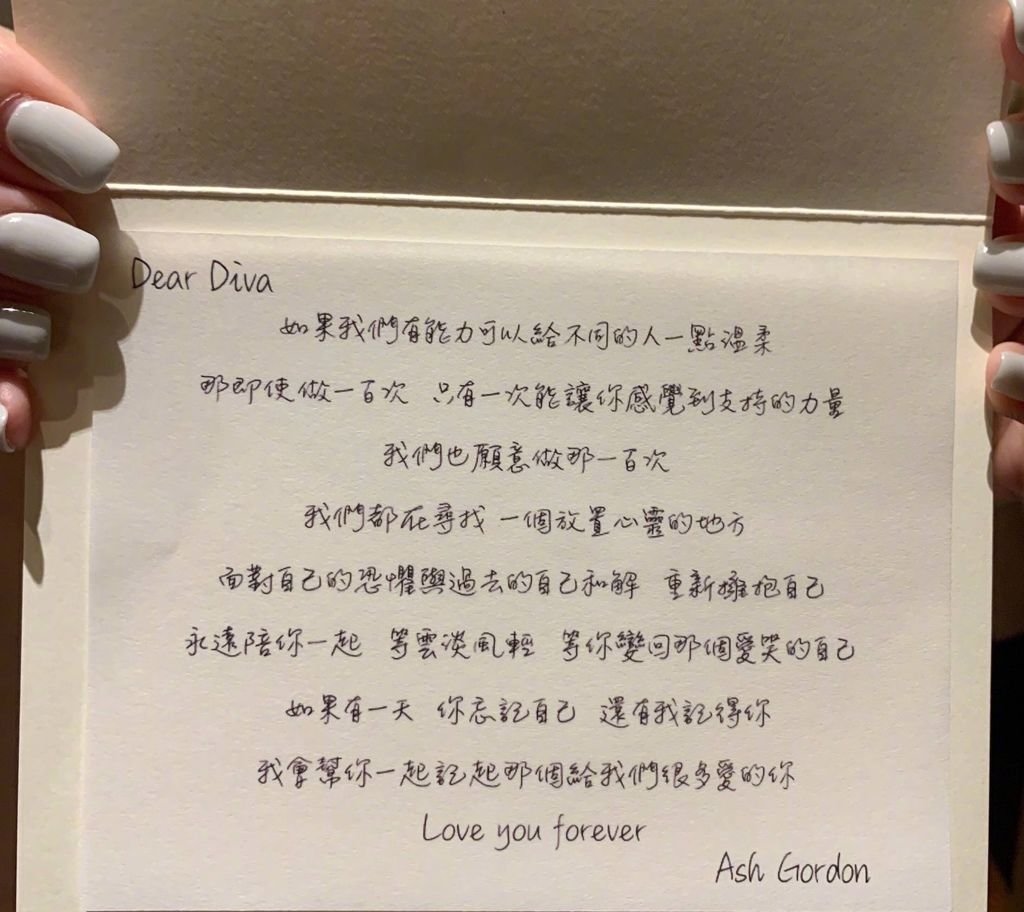 Dear Diva
如果我們有能力可以給不同的人一點溫柔
那即使做一百次 只有一次能讓你感覺到支持的力量
我們也願意做那一百次
我們都在尋找 一個放置心靈的地方
面對自己的恐懼與過去的自己和解 重新擁抱自己
永遠陪你一起 等雲淡風輕 等你變回那個愛笑的自己
如果有一天 你忘記自己 還有我記得你
我會幫你一起記起那個給我們很多愛的你
Love you forever
Ash Gordon